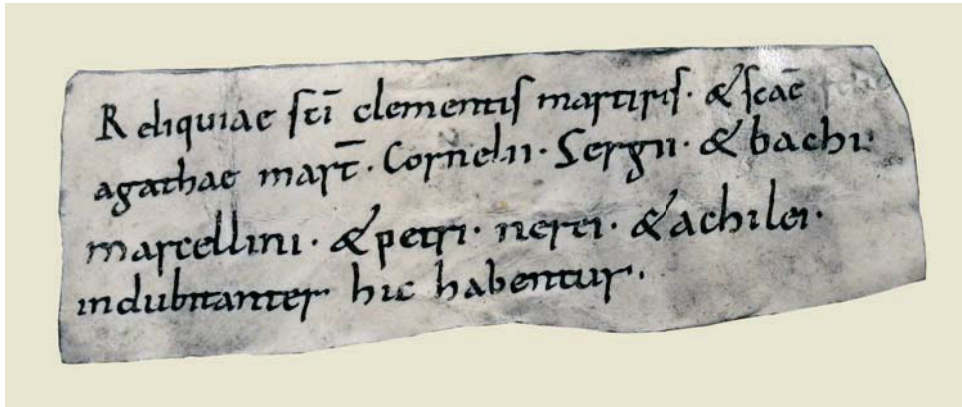 Reliquiae sci̅ clementis martiris · & scae̅
agathae mart̅ · Cornelii · Sergii · & bachi
marcellini · & petri · nerei · & achilei ·
indubitanter hic habentur .